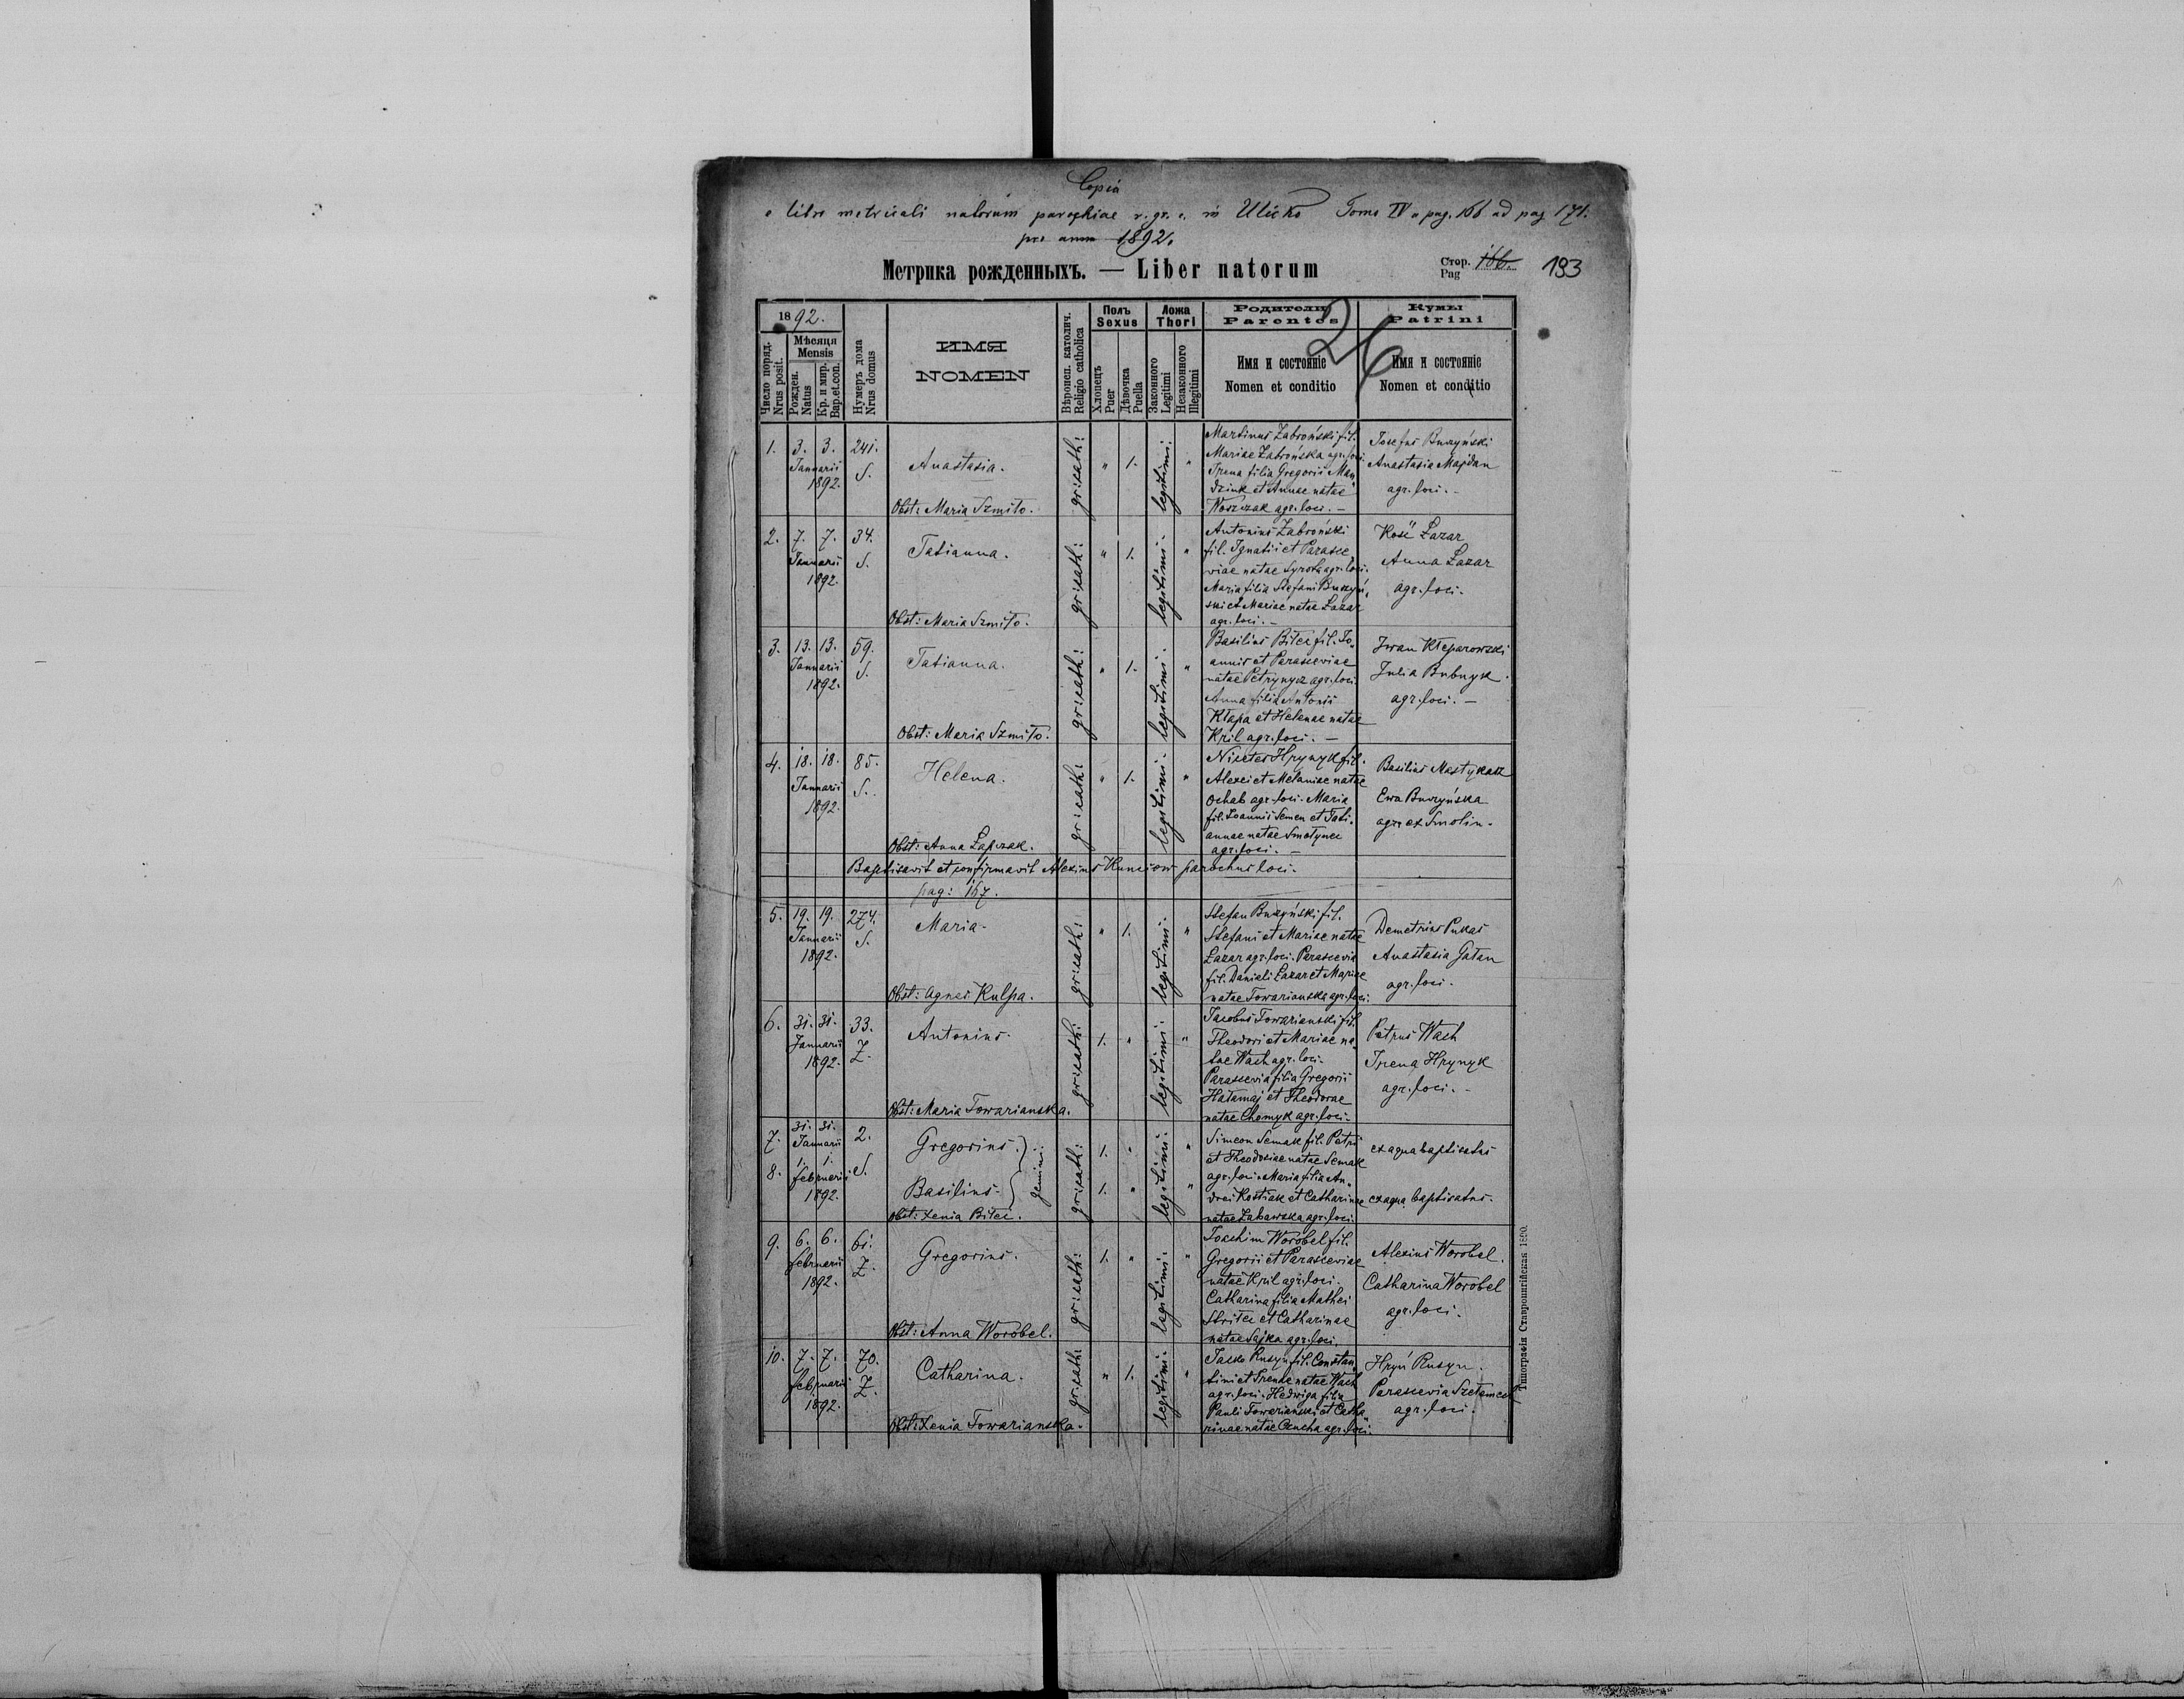 Copia
e libro metricali natorum parochiae r. gr. c. in Ulicko Tomo IV a pag. 166 ad pag 171.
pro anno 1892.
Метрика рожденныхъ. — Liber natorum
Стор. Pag 166. 193
26
1892.
Число поряд. Nrus posit.
Мѣсяця Mensis
Рожден. Natus
Кр. и мир. Bap.et.con.
Нумеръ дома Nrus domus
ИМЯ
NOMEN
Вѣроисп. католич. Religio catholica
Полъ Sexus
Хлопецъ Puer
Дѣвочка Puella
Ложа Thori
Законного Legitimi
Незаконного Illegitimi
Родители
Parentes
Имя и состоянiе
Nomen et conditio
Кумы
Patrini
Имя и состоянiе
Nomen et conditio
1. 3. 3. Januarii 1892. 241. S.
Anastasia.
Obst: Maria Szmiło.
gr: cath: " 1. legitimi. "
Martinus Zabroński fil.
Mariae Zabrońska agr. loci.
Irena filia Gregorii Man
dziuk et Annae natae
Woszczak agr. loci. —
Josefus Buczyński
Anastasia Majdan
agr. loci. -
2. 7. 7. Januarii 1892. 34. S.
Tatianna.
Obst: Maria Szmiło.
gr: cath: " 1. legitimi. "
Antonius Zabroński
fil. Ignatii et Parasce
viae natae Syrota agr. loci.
Maria filia Stefani Buczyń
ski et Mariae natae Łazar
agr. loci. —
Kość Łazar
Anna Łazar
agr. loci.
3. 13. 13. Januarii 1892. 59. S.
Tatianna.
Obst: Maria Szmiło.
gr: cath: " 1. legitimi. "
Basilius Biłeć fil. Jo
annis et Parasceviae
natae Petrynycz agr. loci.
Anna filia Antonii
Kłapa et Helenae natae
Kril agr. loci. —
Iwan Kłeparowski
Julia Bubnyk.
agr. loci. —
4. 18. 18. Januarii 1892. 85. S.
Helena.
Obst: Anna Łapczak.
gr: cath: " 1. legitimi. "
Nicetas Hrynyk fil.
Alexei et Melaniae natae
Ochab agr. loci. Maria
fil. Joannis Semen et Tati
annae natae Smotynec
agr. loci. —
Basilius Mastykasz
Ewa Buczyńska
agr. ex Smolin.
Baptisavit et confirmavit Alexius Kunciów parochus loci.
pag: 167.
5. 19. 19. Januarii 1892. 274. S.
Maria.
Obst: Agnes Kulpa.
gr: cath: " 1. legitimi. "
Stefan Buczyński fil.
Stefani et Mariae natae
Łazar agr. loci. Parascevia
fil. Danieli Łazar et Mariae
natae Towarianska agr. loci.
Demetrius Pukas
Anastasia Gatan
agr. loci.
6. 31. 31. Januarii 1892. 33. Z.
Antonius.
Obst: Maria Towarianska.
gr: cath: 1. " legitimi. "
Jacobus Towarianski fil.
Theodori et Mariae na
tae Wach agr. loci.
Parascevia filia Gregorii
Hatamaj et Theodorae
natae Chomyk agr. loci.
Petrus Wach
Irena Hrynyk
agr. loci. -
7. 31. 31. Januarii 2.
8. 1. 1. februarii 1892. S.
Gregorius.
Basilius.
gemini.
Obst: Xenia Biłeć.
gr: cath: 1. " legitimi. "
1. " "
Simeon Semak fil. Petri
et Theodosiae natae Semak
agr. loci. Maria filia An
drei Kostiak et Catharinae
natae Zabawska agr. loci.
ex aqua baptisatus
ex aqua baptisatus.
9. 6. 6. februarii 1892. 61. Z.
Gregorius.
Obst: Anna Worobel.
gr: cath: 1. " legitimi. "
Joachim Worobel fil.
Gregorii et Parasceviae
natae Kril agr. loci.
Catharina filia Mathei
Striłec et Catharinae
natae Sajka agr. loci.
Alexius Worobel.
Catharina Worobel
agr. loci.
10. 7. 7. februarii 1892. 70. Z.
Catharina.
Obst: Xenia Towarianska.
gr: cath: " 1. legitimi. "
Jacko Rusyn fil. Constan
tini et Irenae natae Wach
agr. loci. Hedwiga filia
Pauli Towarianski et Catha
rinae natae Cencha agr. loci.
Hryń Rusyn.
Parascevia
agr. loci.
Типографія Ставропигійская 1890.